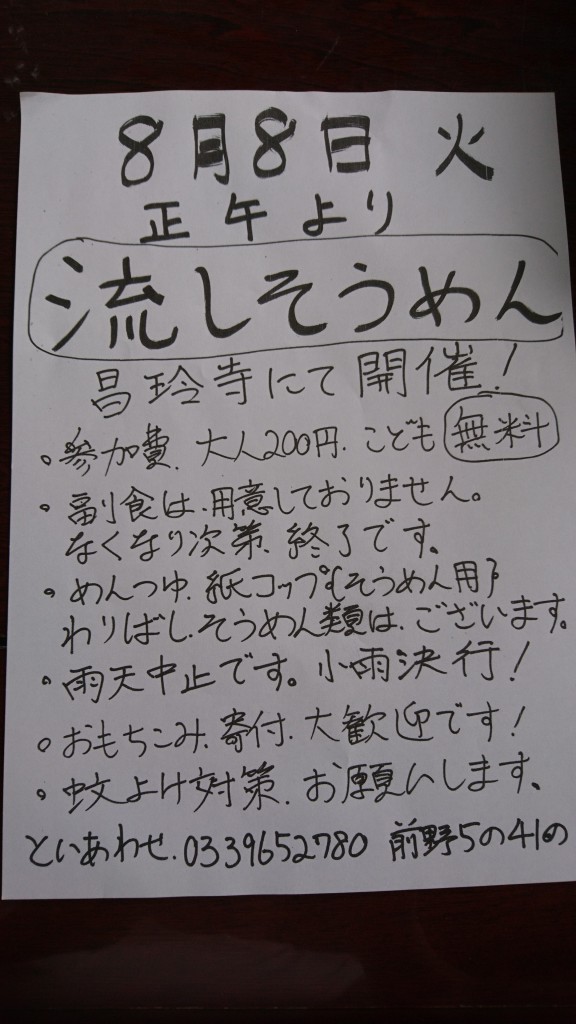 8月8日 火
正午より
流しそうめん
昌玲寺にて開催!
・参加費.大人200円.こども 無料
・副食は.用意しておりません。
なくなり次第.終了です。
・めんつゆ.紙コップ(そうめん用)
わりばし.そうめん類は.ございます。
・雨天中止です。小雨決行!
・おもちこみ.寄付.大歓迎です!
・蚊よけ対策.お願いします。
といあわせ.0339652780 前野5の41の